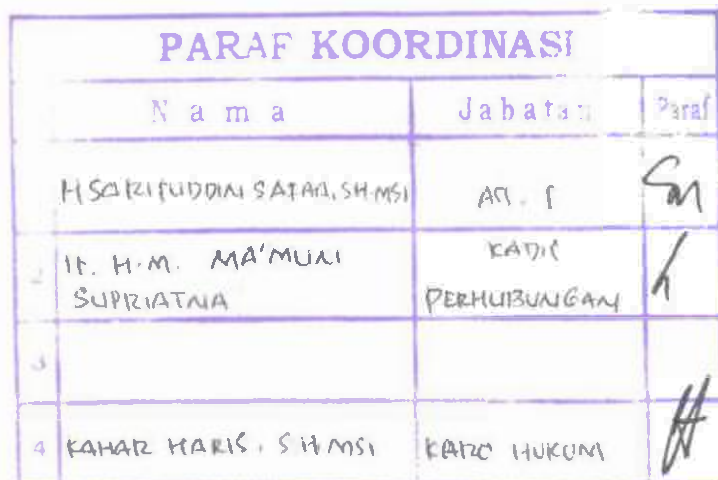 PARAF KOORDINASI
Nama Jabatan Paraf
H SARIFUDDIN SAFAA, SH.MSI
2 Ir. H.M. MA'MUN KADIS
SUPRIATNA PERHUBUNGAN
3
4 KAHAR HARIS, SH MSI KARO HUKUM